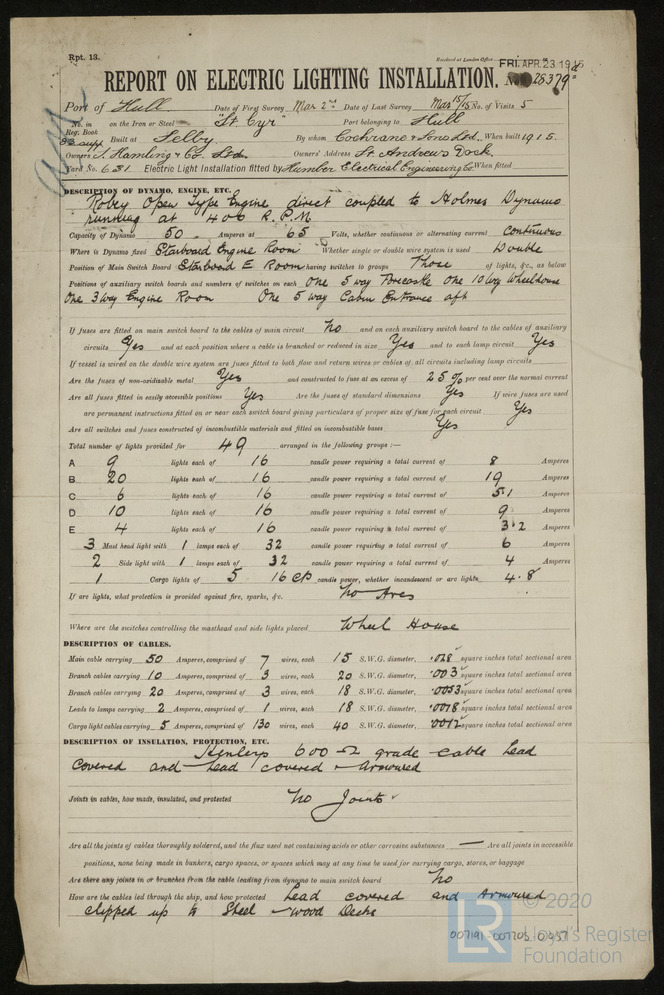 Rpt. 13.
Received at London Office FRI. APR. 23 1915
REPORT ON ELECTRIC LIGHTING INSTALLATION. No. 28379
Port of Hull Date of First Survey Mar 2nd Date of Last Survey Mar 15/15 No. of Visits 5
No. in Reg. Book on the Iron or Steel "St. Cyr" Port belonging to Hull
82 supp Built at Selby By whom Cochrane & Sons Ltd. When built 1915.
Owners J. Hamling & Co. Ltd. Owners' Address St. Andrews Dock.
Yard No. 631 Electric Light Installation fitted by Humber Electrical Engineering Co. When fitted
DESCRIPTION OF DYNAMO, ENGINE, ETC.
Robey Open Type Engine direct coupled to Holmes Dynamo
running at 400 R.P.M
Capacity of Dynamo 50 Amperes at 65 Volts, whether continuous or alternating current continuous
Where is Dynamo fixed Starboard Engine Room Whether single or double wire system is used Double
Position of Main Switch Board Starboard E Room having switches to groups Those of lights, &c., as below
Positions of auxiliary switch boards and numbers of switches on each One 5 way Forecastle One 10 Way Wheelhouse
One 3 Way Engine Room One 5 way Cabin Entrance aft
If fuses are fitted on main switch board to the cables of main circuit No and on each auxiliary switch board to the cables of auxiliary
circuits Yes and at each position where a cable is branched or reduced in size Yes and to each lamp circuit Yes
If vessel is wired on the double wire system are fuses fitted to both flow and return wires or cables of all circuits including lamp circuits
Are the fuses of non-oxidizable metal Yes and constructed to fuse at an excess of 25 % per cent over the normal current
Are all fuses fitted in easily accessible positions Yes Are the fuses of standard dimensions Yes If wire fuses are used
are permanent instructions fitted on or near each switch board giving particulars of proper size of fuse for each circuit Yes
Are all switches and fuses constructed of incombustible materials and fitted on incombustible bases Yes
Total number of lights provided for 49 arranged in the following groups :—
A 9 lights each of 16 candle power requiring a total current of 8 Amperes
B 20 lights each of 16 candle power requiring a total current of 19 Amperes
C 6 lights each of 16 candle power requiring a total current of 5.1 Amperes
D 10 lights each of 16 candle power requiring a total current of 9 Amperes
E 4 lights each of 16 candle power requiring a total current of 3.2 Amperes
3 Mast head light with 1 lamps each of 32 candle power requiring a total current of 6 Amperes
2 Side light with 1 lamps each of 32 candle power requiring a total current of 4 Amperes
1 Cargo lights of 5 16 CP candle power, whether incandescent or arc lights 4.8
If arc lights, what protection is provided against fire, sparks, &c. No Arcs
Where are the switches controlling the masthead and side lights placed Wheel House
DESCRIPTION OF CABLES.
Main cable carrying 50 Amperes, comprised of 7 wires, each 15 S.W.G. diameter, .028 square inches total sectional area
Branch cables carrying 10 Amperes, comprised of 3 wires, each 20 S.W.G. diameter, .003 square inches total sectional area
Branch cables carrying 20 Amperes, comprised of 3 wires, each 18 S.W.G. diameter, .0053 square inches total sectional area
Leads to lamps carrying 2 Amperes, comprised of 1 wires, each 18 S.W.G. diameter, .0018 square inches total sectional area
Cargo light cables carrying 5 Amperes, comprised of 130 wires, each 40 S.W.G. diameter, .0012 square inches total sectional area
DESCRIPTION OF INSULATION, PROTECTION, ETC.
Henleys 600 Ω grade cable Lead
Covered and Lead covered & Armoured
Joints in cables, how made, insulated, and protected No Joints
Are all the joints of cables thoroughly soldered, and the flux used not containing acids or other corrosive substances — Are all joints in accessible
positions, none being made in bunkers, cargo spaces, or spaces which may at any time be used for carrying cargo, stores, or baggage
Are there any joints in or branches from the cable leading from dynamo to main switch board No
How are the cables led through the ship, and how protected Lead covered and Armoured
clipped up to Steel & Wood Decks
© 2020
LR Lloyd's Register
Foundation